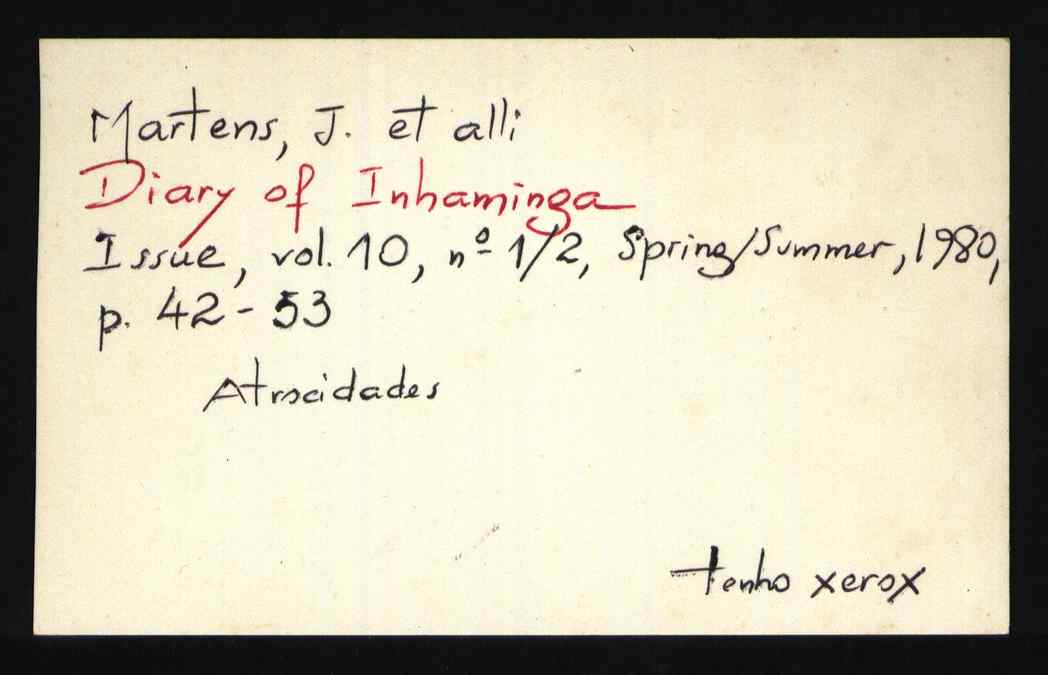 Martens, J. et alli
Diary of Inhaminga
Issue, vol. 10, nº 1/2, Spring/Summer, 1980,
p. 42 - 53
Atrocidades
tenho xerox